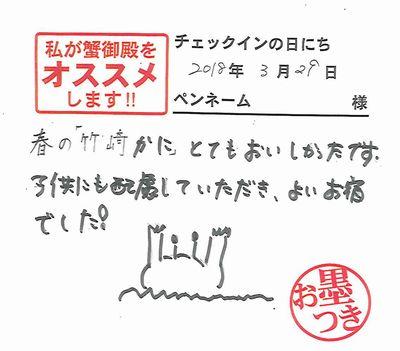 私が蟹御殿を
オススメ
します!!
チェックインの日にち
2018年 3月29日
ペンネーム 様
春の「竹崎かに」とてもおいしかったです。
子供にも配慮していただき、よいお宿
でした!
お墨つき